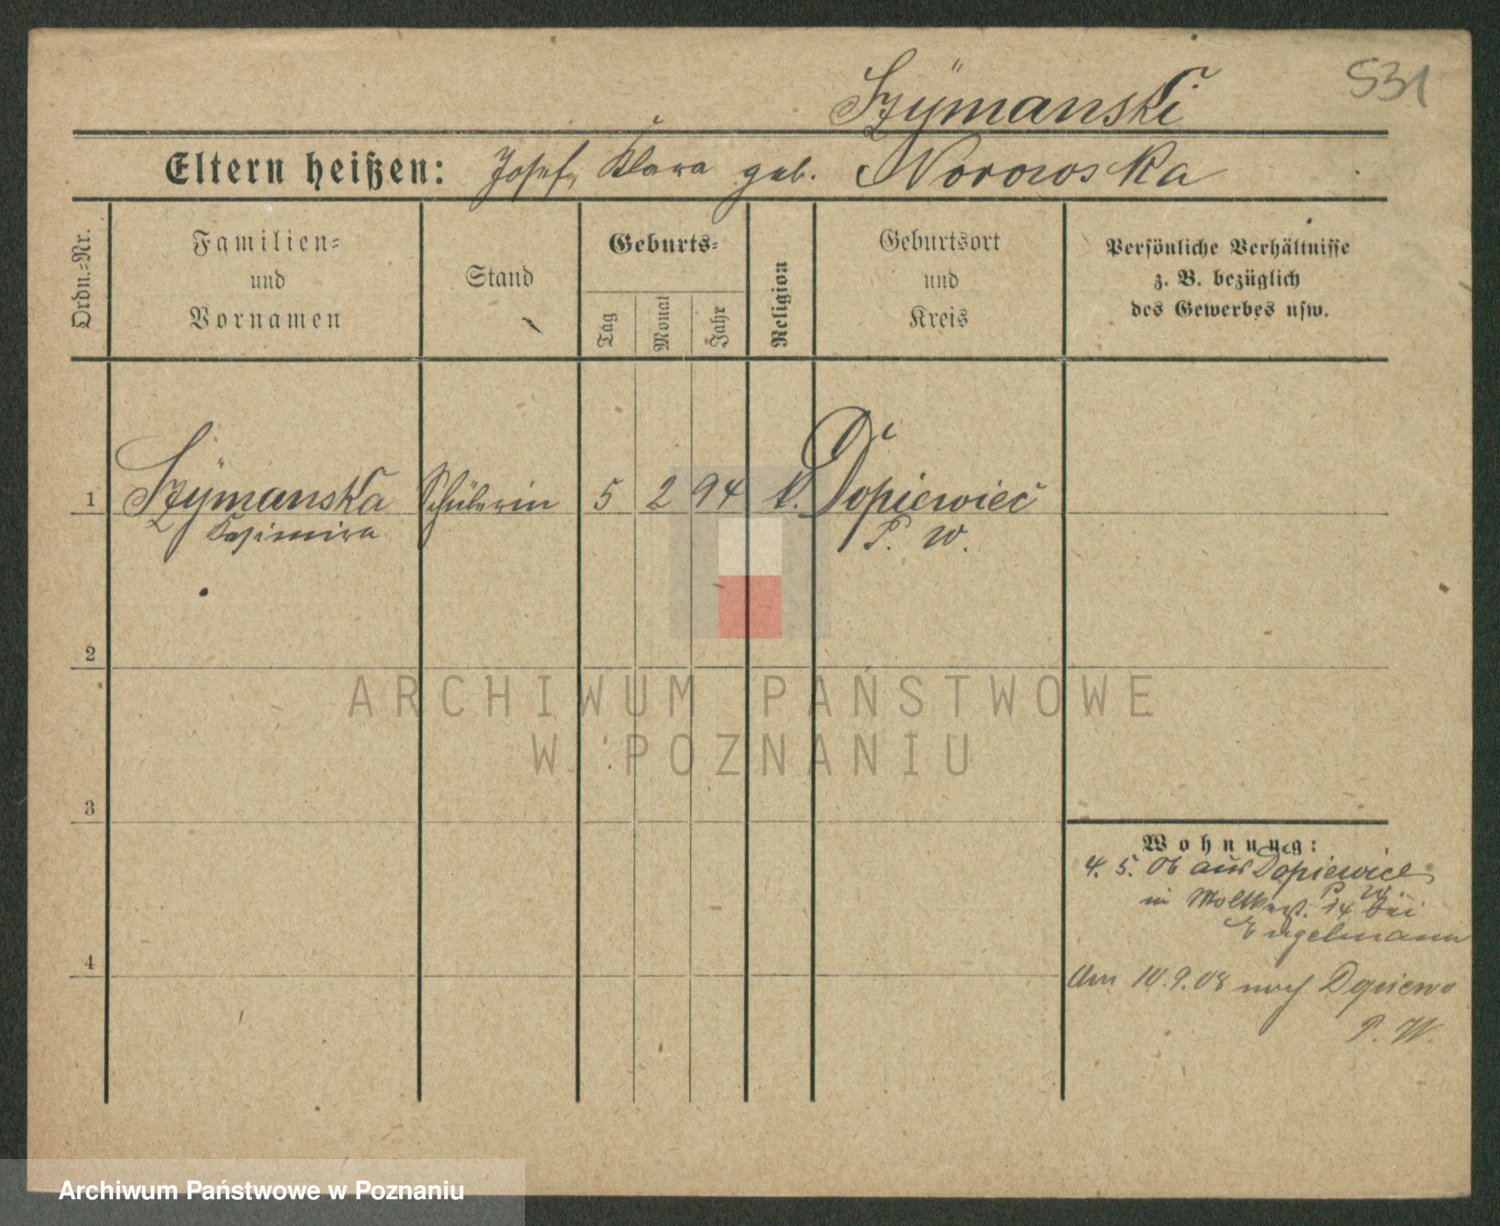 531
Szÿmanski
Eltern heißen: Josef, Klara geb. Norowska
Ordn.=Nr.
Familien=
und
Vornamen
Stand
Geburts=
Tag
Monat
Jahr
Religion
Geburtsort
und
Kreis
Persönliche Verhältnisse
z. B. bezüglich
des Gewerbes usw.
1 Szÿmanska Schülerin 5 2 94 k. Dopiewiec
Kasimira P. W.
2
3
4
Wohnung:
4. 5. 06 aus Dopiewiec
P. W.
in Moltkest. 14 bei
Engelmann
Am 10.9.08 nach Dopiewo
P. W.
ARCHIWUM PAŃSTWOWE
W POZNANIU
Archiwum Państwowe w Poznaniu